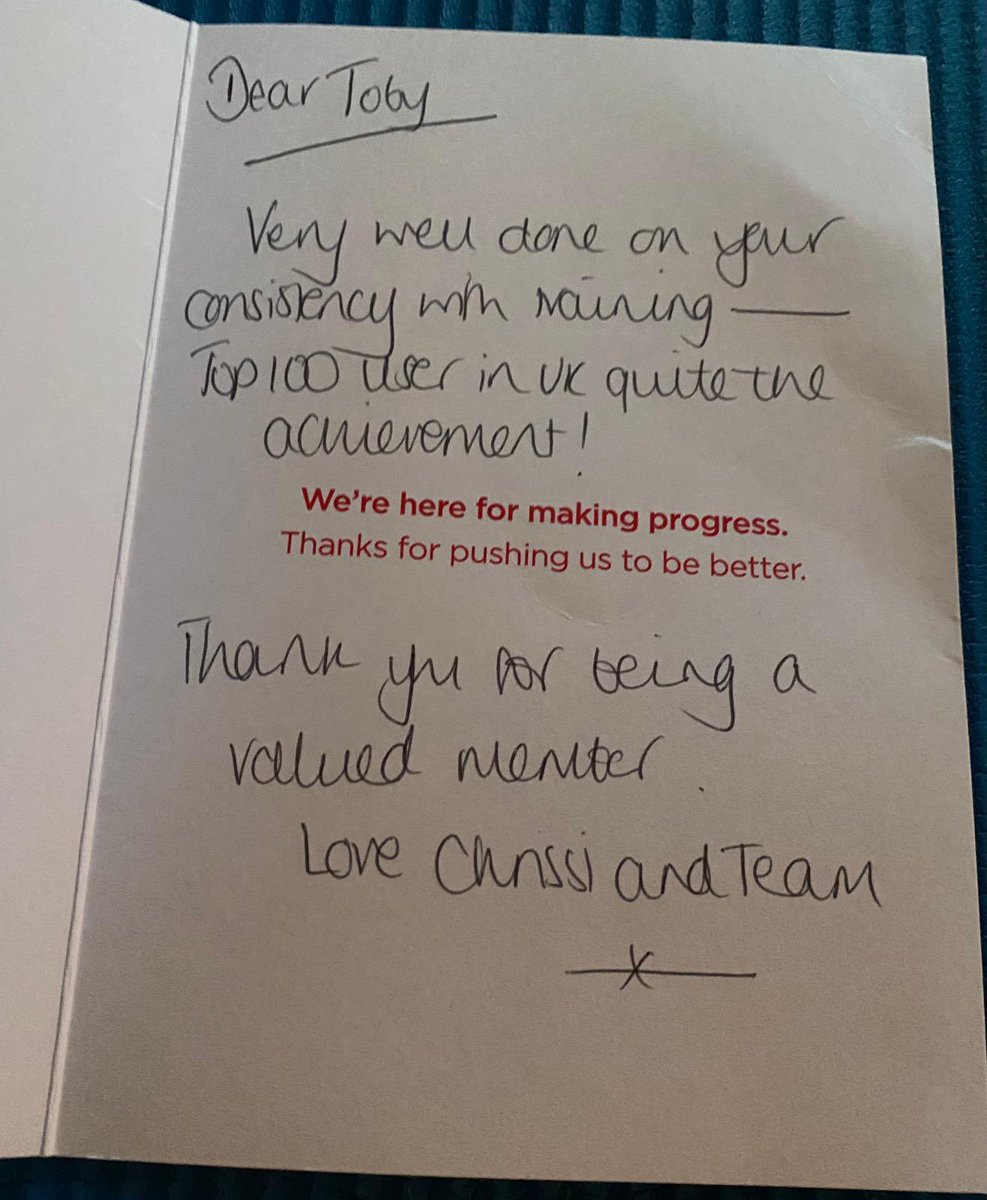 Dear Toby
Very well done on your
consistency with training —
Top 100 user in UK quite the
achievement!
We're here for making progress.
Thanks for pushing us to be better.
Thank you for being a
valued member.
Love Chrissi and Team
x